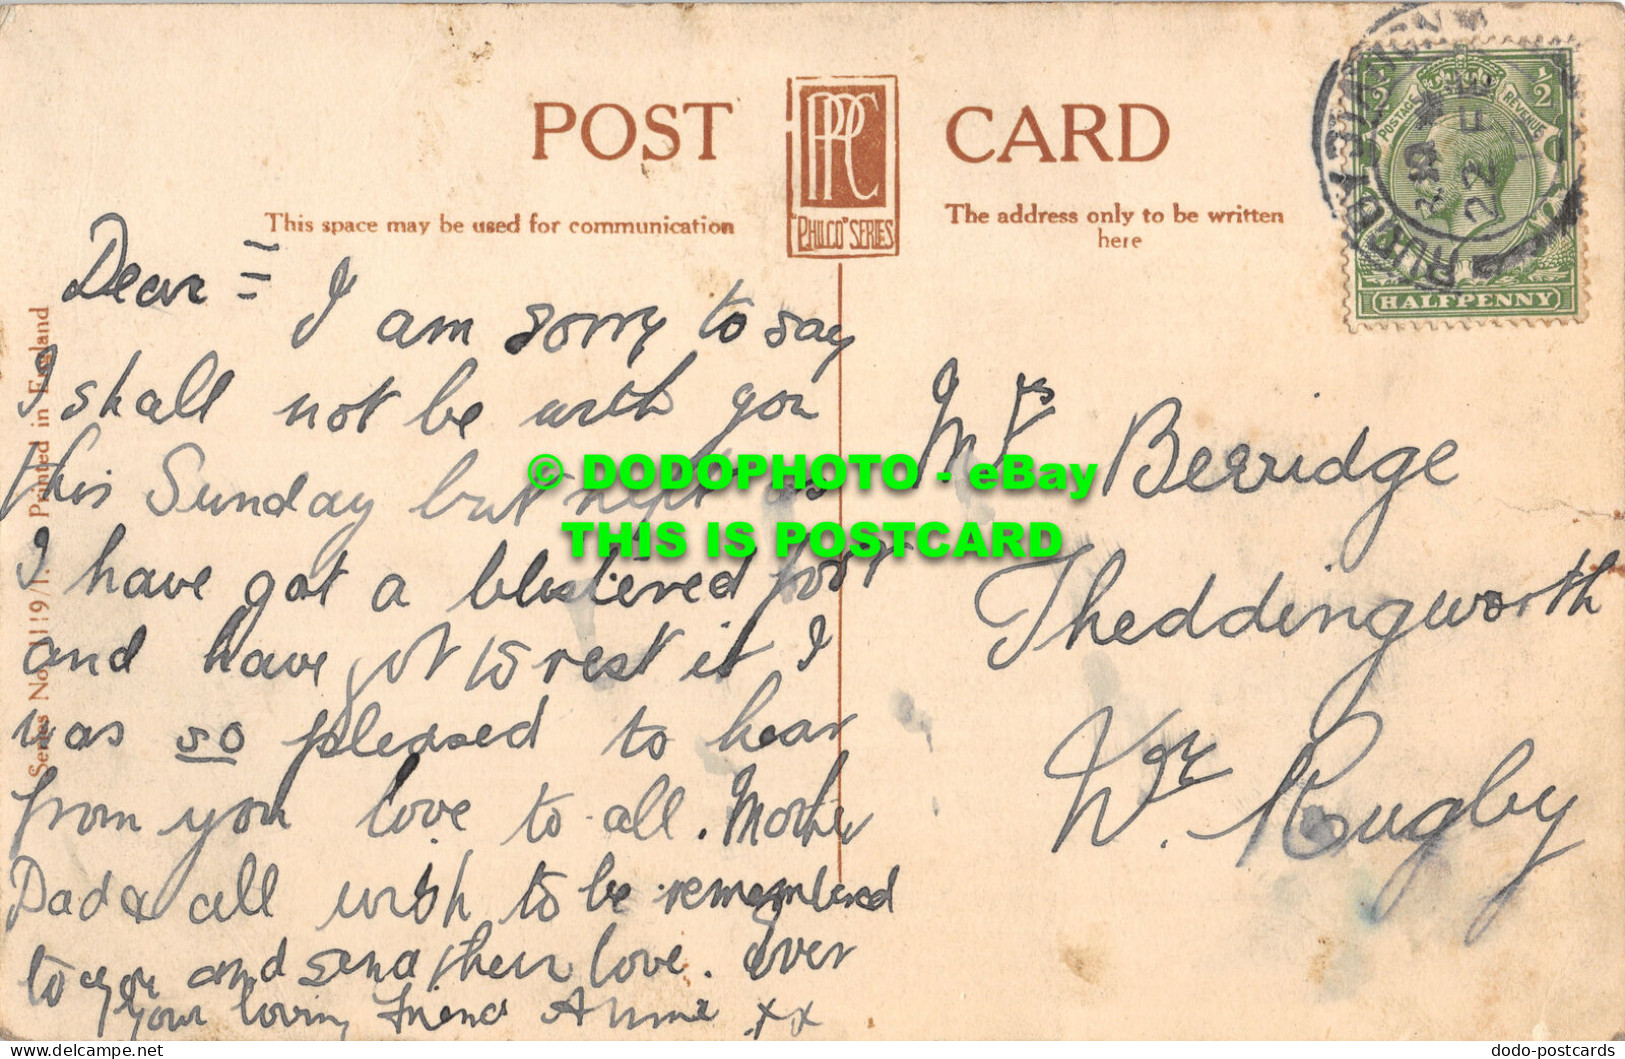 POST CARD
PPC
"PHILCO" SERIES
This space may be used for communication
The address only to be written
here
POSTAGE REVENUE
½ ½
HALFPENNY
RUGBY STATION
22 FE
Series No. 1119/1. Printed in England
Dear =
I am sorry to say
I shall not be with you
this Sunday but next as
I have got a blistered foot
and have got to rest it I
was so pleased to hear
from you love to all. Mother
Dad & all wish to be remembered
to you and send their love. Over
Your loving Friend Annie xx
Mrs Berridge
Theddingworth
Nr. Rugby
© DODOPHOTO - eBay
THIS IS POSTCARD
dodo-postcards